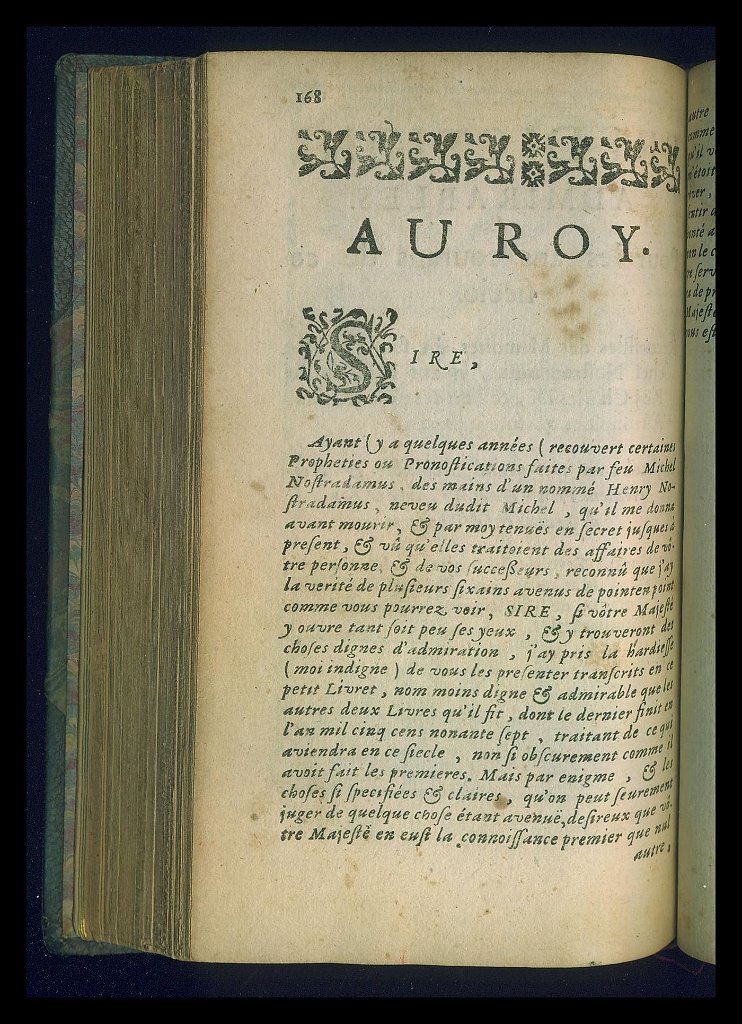 168
AU ROY.
SIRE,
Ayant (y a quelques années ( recouvert certaines
Propheties ou Pronoſtications faites par feu Michel
Noſtradamus, des mains d'un nommé Henry No-
ſtradamus, neveu dudit Michel, qu'il me donna
avant mourir, & par moy tenuës en ſecret juſques à
preſent, & vû qu'elles traitoient des affaires de vô-
tre perſonne, & de vos ſucceßeurs, reconnû que j'ay
la verité de pluſieurs ſixains avenus de point en point
comme vous pourrez voir, SIRE, ſi vôtre Majeſté
y ouvre tant ſoit peu ſes yeux, & y trouveront des
choſes dignes d'admiration, j'ay pris la hardieſſe
(moi indigne) de vous les preſenter tranſcrits en ce
petit Livret, nom moins digne & admirable que les
autres deux Livres qu'il fit, dont le dernier finit en
l'an mil cinq cens nonante ſept, traitant de ce qui
aviendra en ce ſiecle, non ſi obſcurement comme il
avoit fait les premieres. Mais par enigme, & les
choſes ſi ſpecifiées & claires, qu'on peut ſeurement
juger de quelque choſe étant avenuë, deſireux que vô-
tre Majeſté en euſt la connoiſſance premier que nul
autre,
autre
comme
qu'il